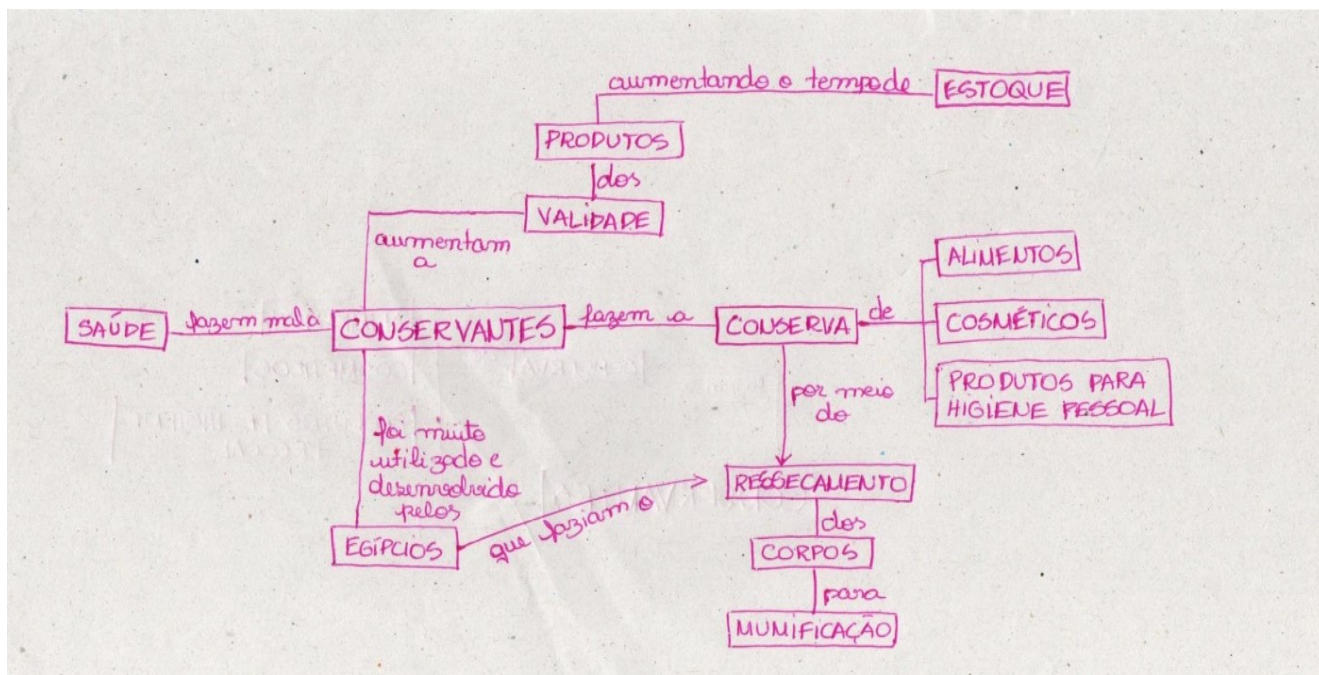 aumentando o tempo de ESTOQUE
PRODUTOS
dos
VALIDADE
aumentam
a
ALIMENTOS
SAÚDE fazem mal à CONSERVANTES fazem a CONSERVA de COSMÉTICOS
PRODUTOS PARA
HIGIENE PESSOAL
por meio
do
foi muito
utilizado e
desenvolvido
pelos
RESSECAMENTO
que faziam o
dos
EGÍPCIOS
CORPOS
para
MUMIFICAÇÃO